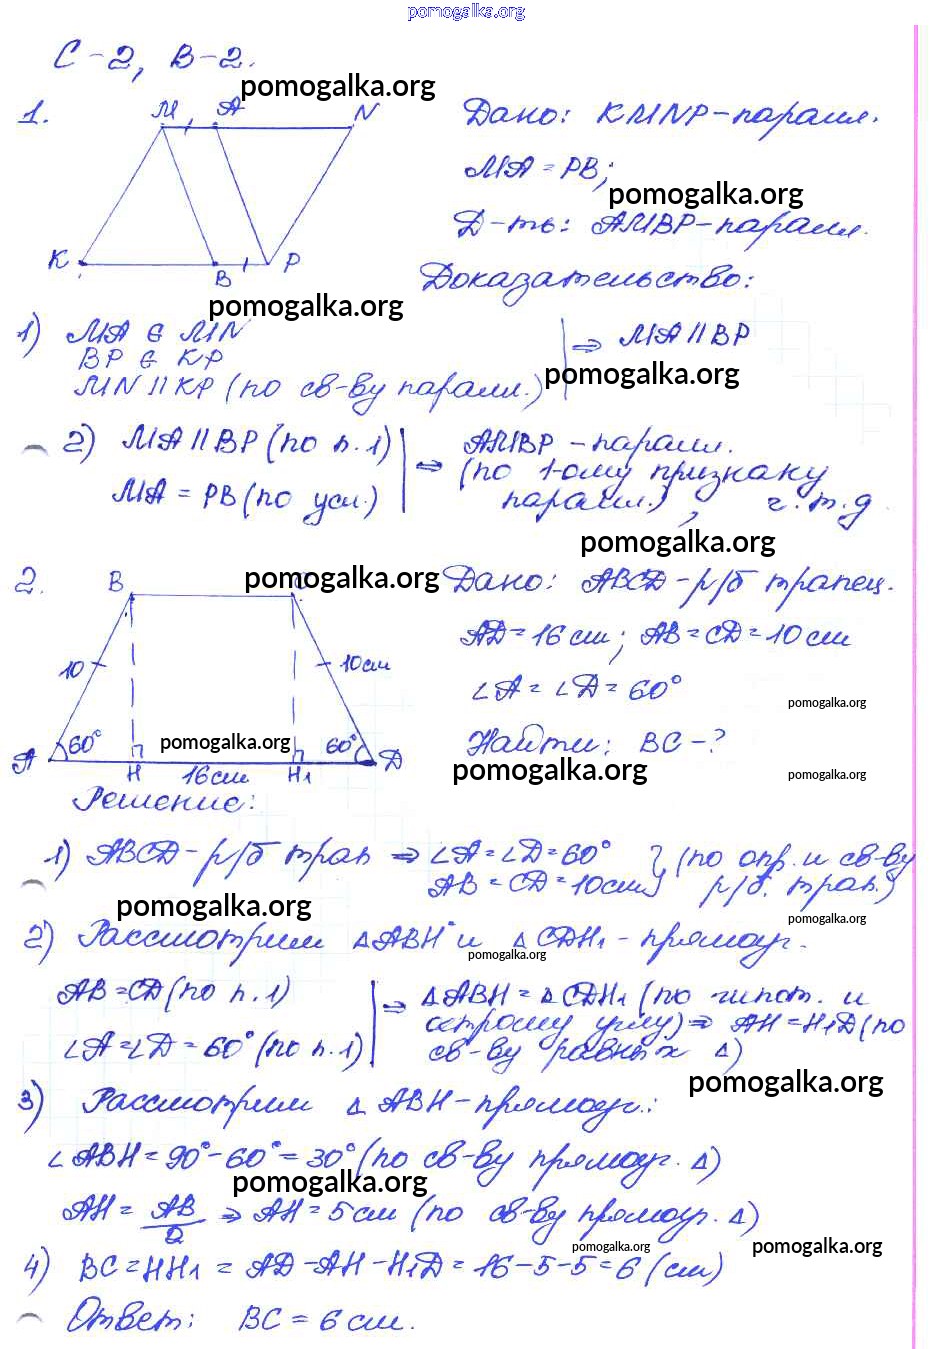 pomogalka.org
С-2, В-2.
pomogalka.org
1.
M A N
K B P
Дано: KMNP-парал.
MA = PB;
pomogalka.org
Д-ть: AMBP-парал.
Доказательство:
pomogalka.org
1) MA ∈ MN
BP ∈ KP
MN || KP (по св-ву парал.)
⇒ MA || BP
pomogalka.org
2) MA || BP (по п. 1)
MA = PB (по усл.)
⇒ AMBP - парал.
(по 1-ому признаку
парал.), ч.т.д.
pomogalka.org
2.
B
pomogalka.org
10
10см
A 60°
pomogalka.org
60° D
H 16см H₁
Дано: ABCD-р/б трапец.
AD=16см; AB=CD=10см
∠A = ∠D = 60°
pomogalka.org
Найти: BC-?
pomogalka.org
pomogalka.org
Решение:
1) ABCD-р/б трап ⇒ ∠A=∠D=60° } (по опр. и св-ву
AB = CD=10см} р/б. трап.)
pomogalka.org
pomogalka.org
2) Рассмотрим ΔABH и ΔCDH₁ - прямоуг.
pomogalka.org
AB=CD (по п. 1)
∠A=∠D = 60° (по п. 1)
⇒ ΔABH = ΔCDH₁ (по гипот. и
острому углу) ⇒ AH=H₁D (по
св-ву равных Δ)
pomogalka.org
3) Рассмотрим ΔABH-прямоуг.:
∠ABH = 90°-60° = 30° (по св-ву прямоуг. Δ)
pomogalka.org
AH = AB/2 ⇒ AH = 5см (по св-ву прямоуг. Δ)
pomogalka.org
pomogalka.org
4) BC=HH₁ = AD-AH-H₁D = 16-5-5=6 (см)
Ответ: BC = 6 см.